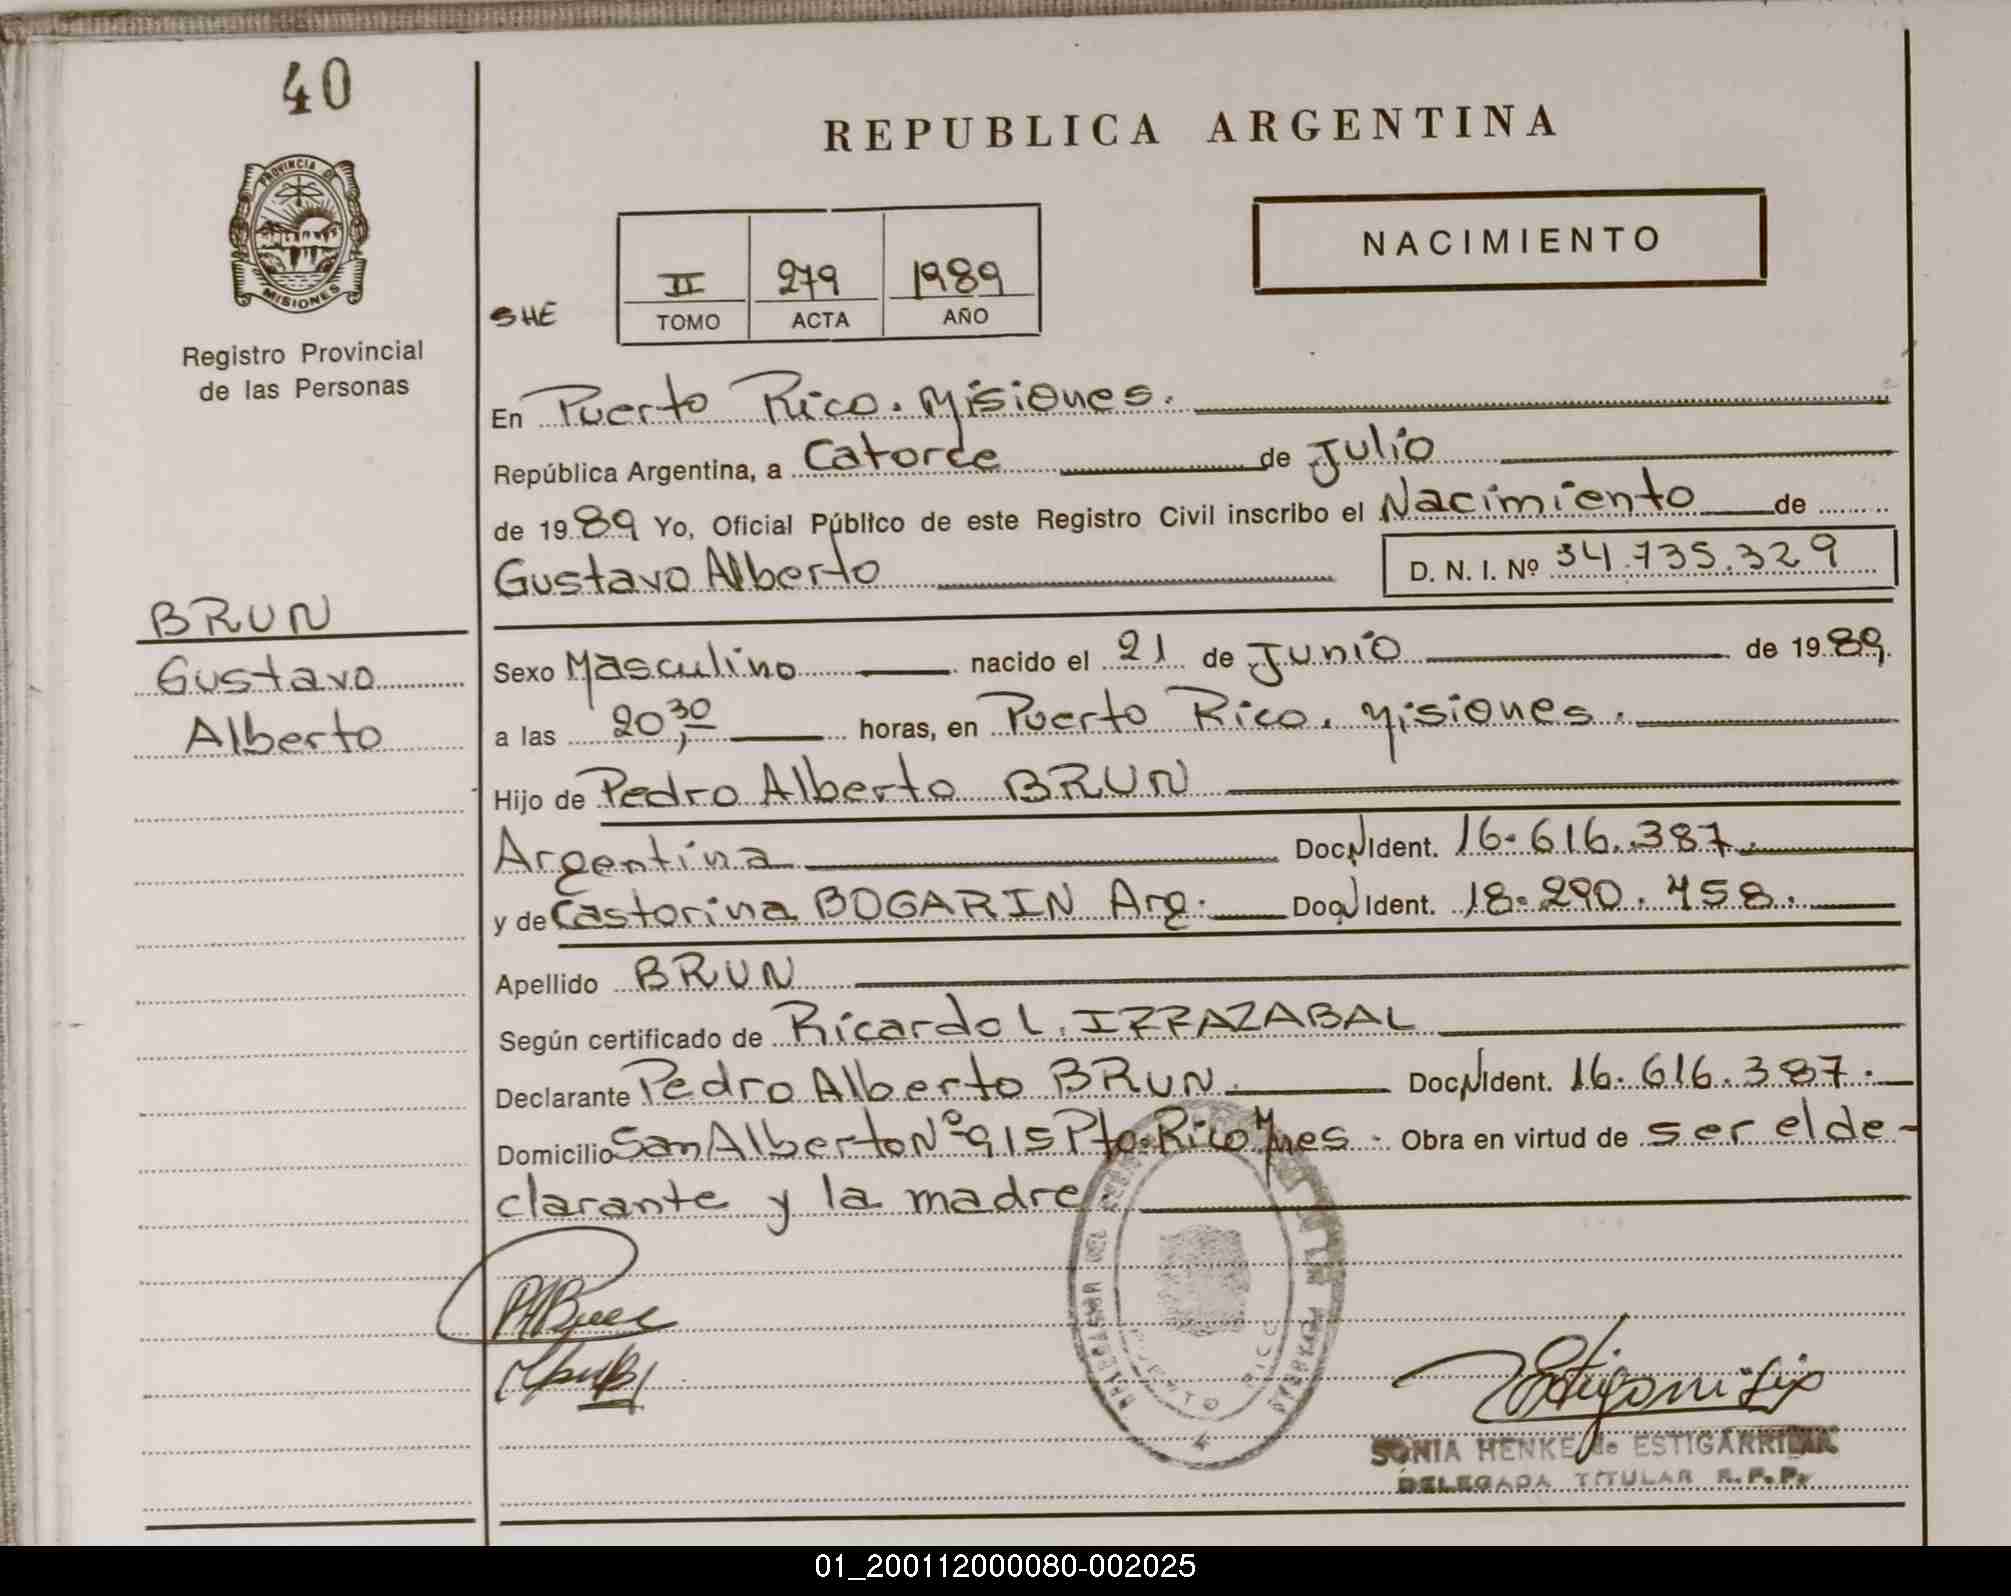 40
PROVINCIA DE
MISIONES
Registro Provincial
de las Personas
REPUBLICA ARGENTINA
NACIMIENTO
SHE
II 279 1989
TOMO ACTA AÑO
En Puerto Rico. Misiones.
República Argentina, a Catorce de Julio
de 1989 Yo, Oficial Público de este Registro Civil inscribo el Nacimiento de
Gustavo Alberto D. N. I. Nº 34.735.329
BRUN
Gustavo
Alberto
Sexo Masculino nacido el 21 de Junio de 1989.
a las 20,30 horas, en Puerto Rico. Misiones.
Hijo de Pedro Alberto BRUN
Argentina Doc.N.Ident. 16.616.387.
y de Castorina BOGARIN Arg. Doc.N.Ident. 18.290.458.
Apellido BRUN
Según certificado de Ricardo L. IRRAZABAL
Declarante Pedro Alberto BRUN. Doc.N.Ident. 16.616.387.
Domicilio San Alberto Nº 915 Pto. Rico Mnes. Obra en virtud de ser el de-
clarante y la madre
PUERTO RICO
SONIA HENKE de ESTIGARRIBIA
DELEGADA TITULAR R.P.P.
01_200112000080-002025